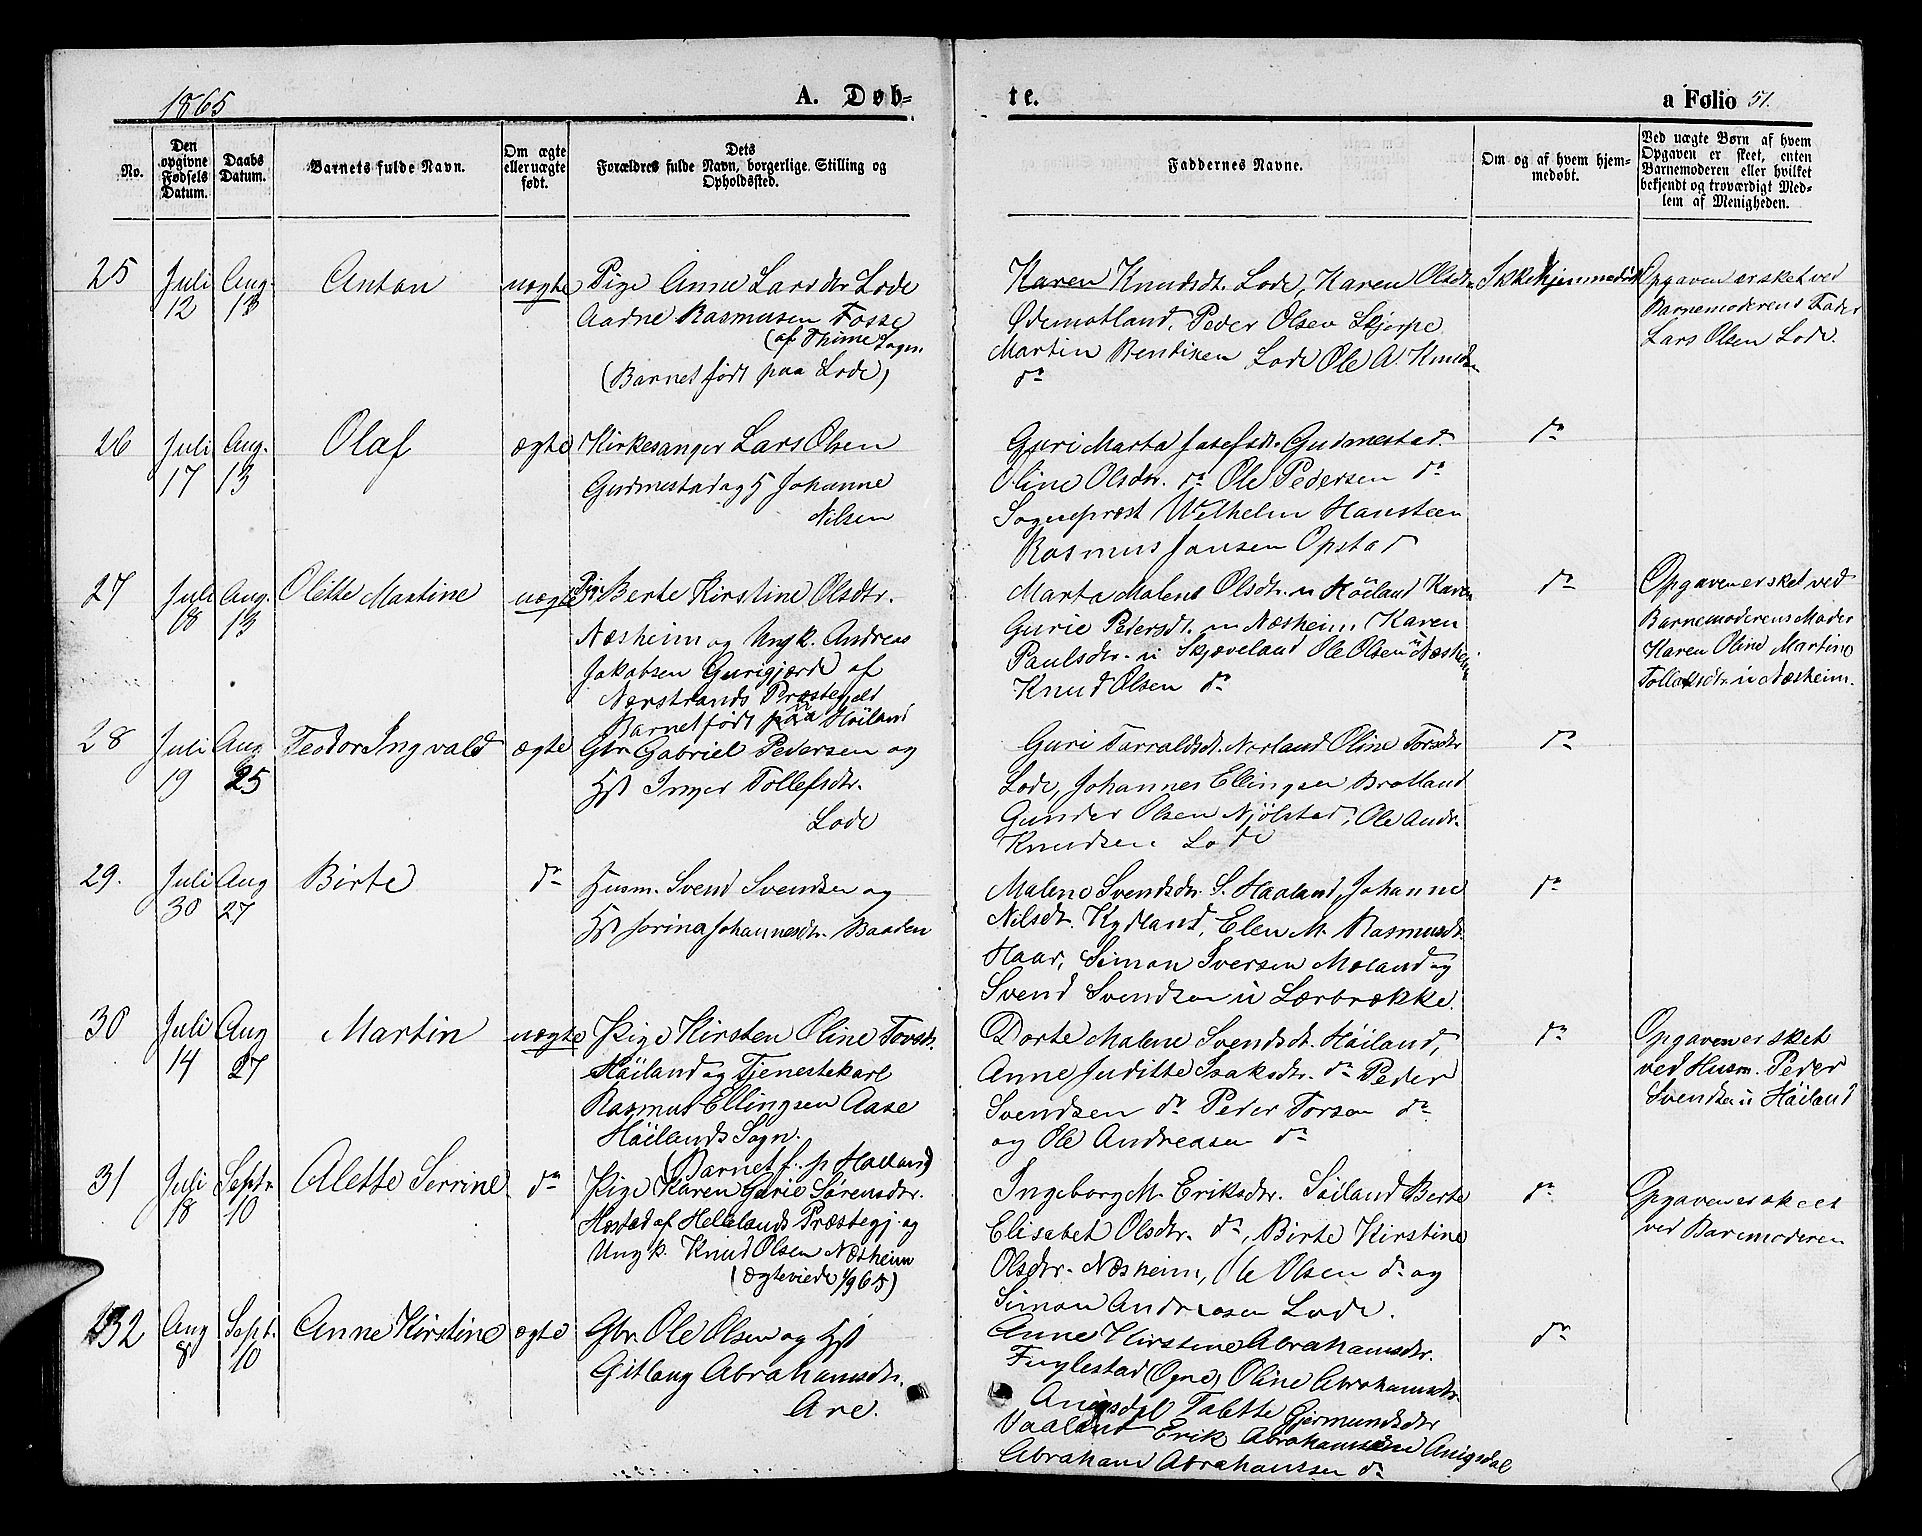 1865
A. Døb-
te.
a Folio 51.
No.
Den opgivne Fødsels Datum.
Daabs Datum.
Barnets fulde Navn.
Om ægte eller uægte født.
Dets Forældres fulde Navn, borgerlige Stilling og Opholdssted.
Faddernes Navne.
Om og af hvem hjemmedøbt.
Ved uægte Børn af hvem Opgaven er skeet, enten Barnemoderen eller hvilket bekjendt og troværdigt Medlem af Menigheden.
25 Juli 12 Aug. 13 Anton uægte
Pige Anne Larsdtr Lode
Aadne Rasmusen Fosse
(af Thime Sogn.
(Barnet født paa Lode)
Karen Knudsdt. Lode, Karen Olsdtr
Ødemotland, Peder Olsen Skjorpe
Martin Bendiksen Lode Ole A. Knuds
do
Ikke hjemmedøbt
Opgaven er sket ved
Barnemoderens Fader
Lars Olsen Lode.
26 Juli 17 Aug. 13 Olaf ægte
Kirkesanger Lars Olsen
Gudmestad og H Johanne
Nilsen
Guri Marta Josefsdtr. Gudmestad.
Oline Olsdtr. do Ole Pedersen do
Sogneprest Wilhelm Hansteen
Rasmus Jansen Opstad
do
27 Juli 18 Aug. 13 Olette Martine uægte
Pige Berte Kirstine Olsdtr.
Næsheim og Ungk. Andreas
Jakobsen Gurigjærde af
Nerstrands Præstegjeld
Barnet født paa Höiland
Marta Malene Olsdtr. u Höiland Karen
Gurie Pedersdt. u Næsheim, Karen
Paulsdtr. u Skjæveland Ole Olsen u Næsheim
Knud Olsen do
do
Opgaven er sket ved
Barnemoderens Moder
Karen Oline Martine
Tollefsdtr. u Næsheim.
28 Juli 19 Aug 25 Teodor Ingvald ægte
Gbr Gabriel Pedersen og
Hst Inger Tollefsdtr.
Lode
Guri Tarraldsdt. Norland Oline Torsdtr
Lode, Johannes Ellingsen Bratland
Gunder Olsen Njölstad, Ole Andr.
Knudsen Lode
do
29. Juli 30 Aug 27 Birte do
Husm. Svend Svendsen og
Hst Jorina Johannesdtr. Baaden
Malene Svendsdtr. S. Haaland, Johanne
Nilsdt. Kydland, Elen M. Rasmusdt.
Haar, Simon Iversen Moland og
Svend Svendsen u Lærbrække.
do
30 Juli 14 Aug 27 Martin uægte
Pige Kirsten Oline Torsdtr.
Höiland og Tjenestekarl
Rasmus Ellingsen Aase
Höilands Sogn.
(Barnet f. p Haaland)
Dorte Malene Svendsdt. Höiland,
Anne Juditte Isaksdtr. do Peder
Svendsen do Peder Torsen do
og Ole Andreasen do
do
Opgaven er sket
ved Husm. Peder
Svendsen u Höiland
31 Juli 18 Septr 10 Alette Serrine do
Pige Karen Gurie Sörensdtr.
Hæstad af Hellelands Præstegj. og
Ungk. Knud Olsen Næsheim
(ægteviede 1/9 65)
Ingeborg M. Eriksdtr. Söiland Berte
Elisabet Olsdtr. do, Birte Kirstine
Olsdtr. Næsheim, Ole Olsen do og
Simon Andreasen Lode.
do
Opgaven er skeet
ved Barnemoderen
32 Aug 8 Sept. 10 Anne Kirstine ægte
Gbr. Ole Olsen og Hst
Gitlaug Abrahamsdtr.
Are.
Anne Kirstine Abrahamsdtr.
Fuglestad (Ogne) Oline Abrahamsdtr.
Anigsdal Talette Gjermundsdtr
Vaaland Erik Abrahamsen Anigsdal
Abraham Abrahamsen do
do